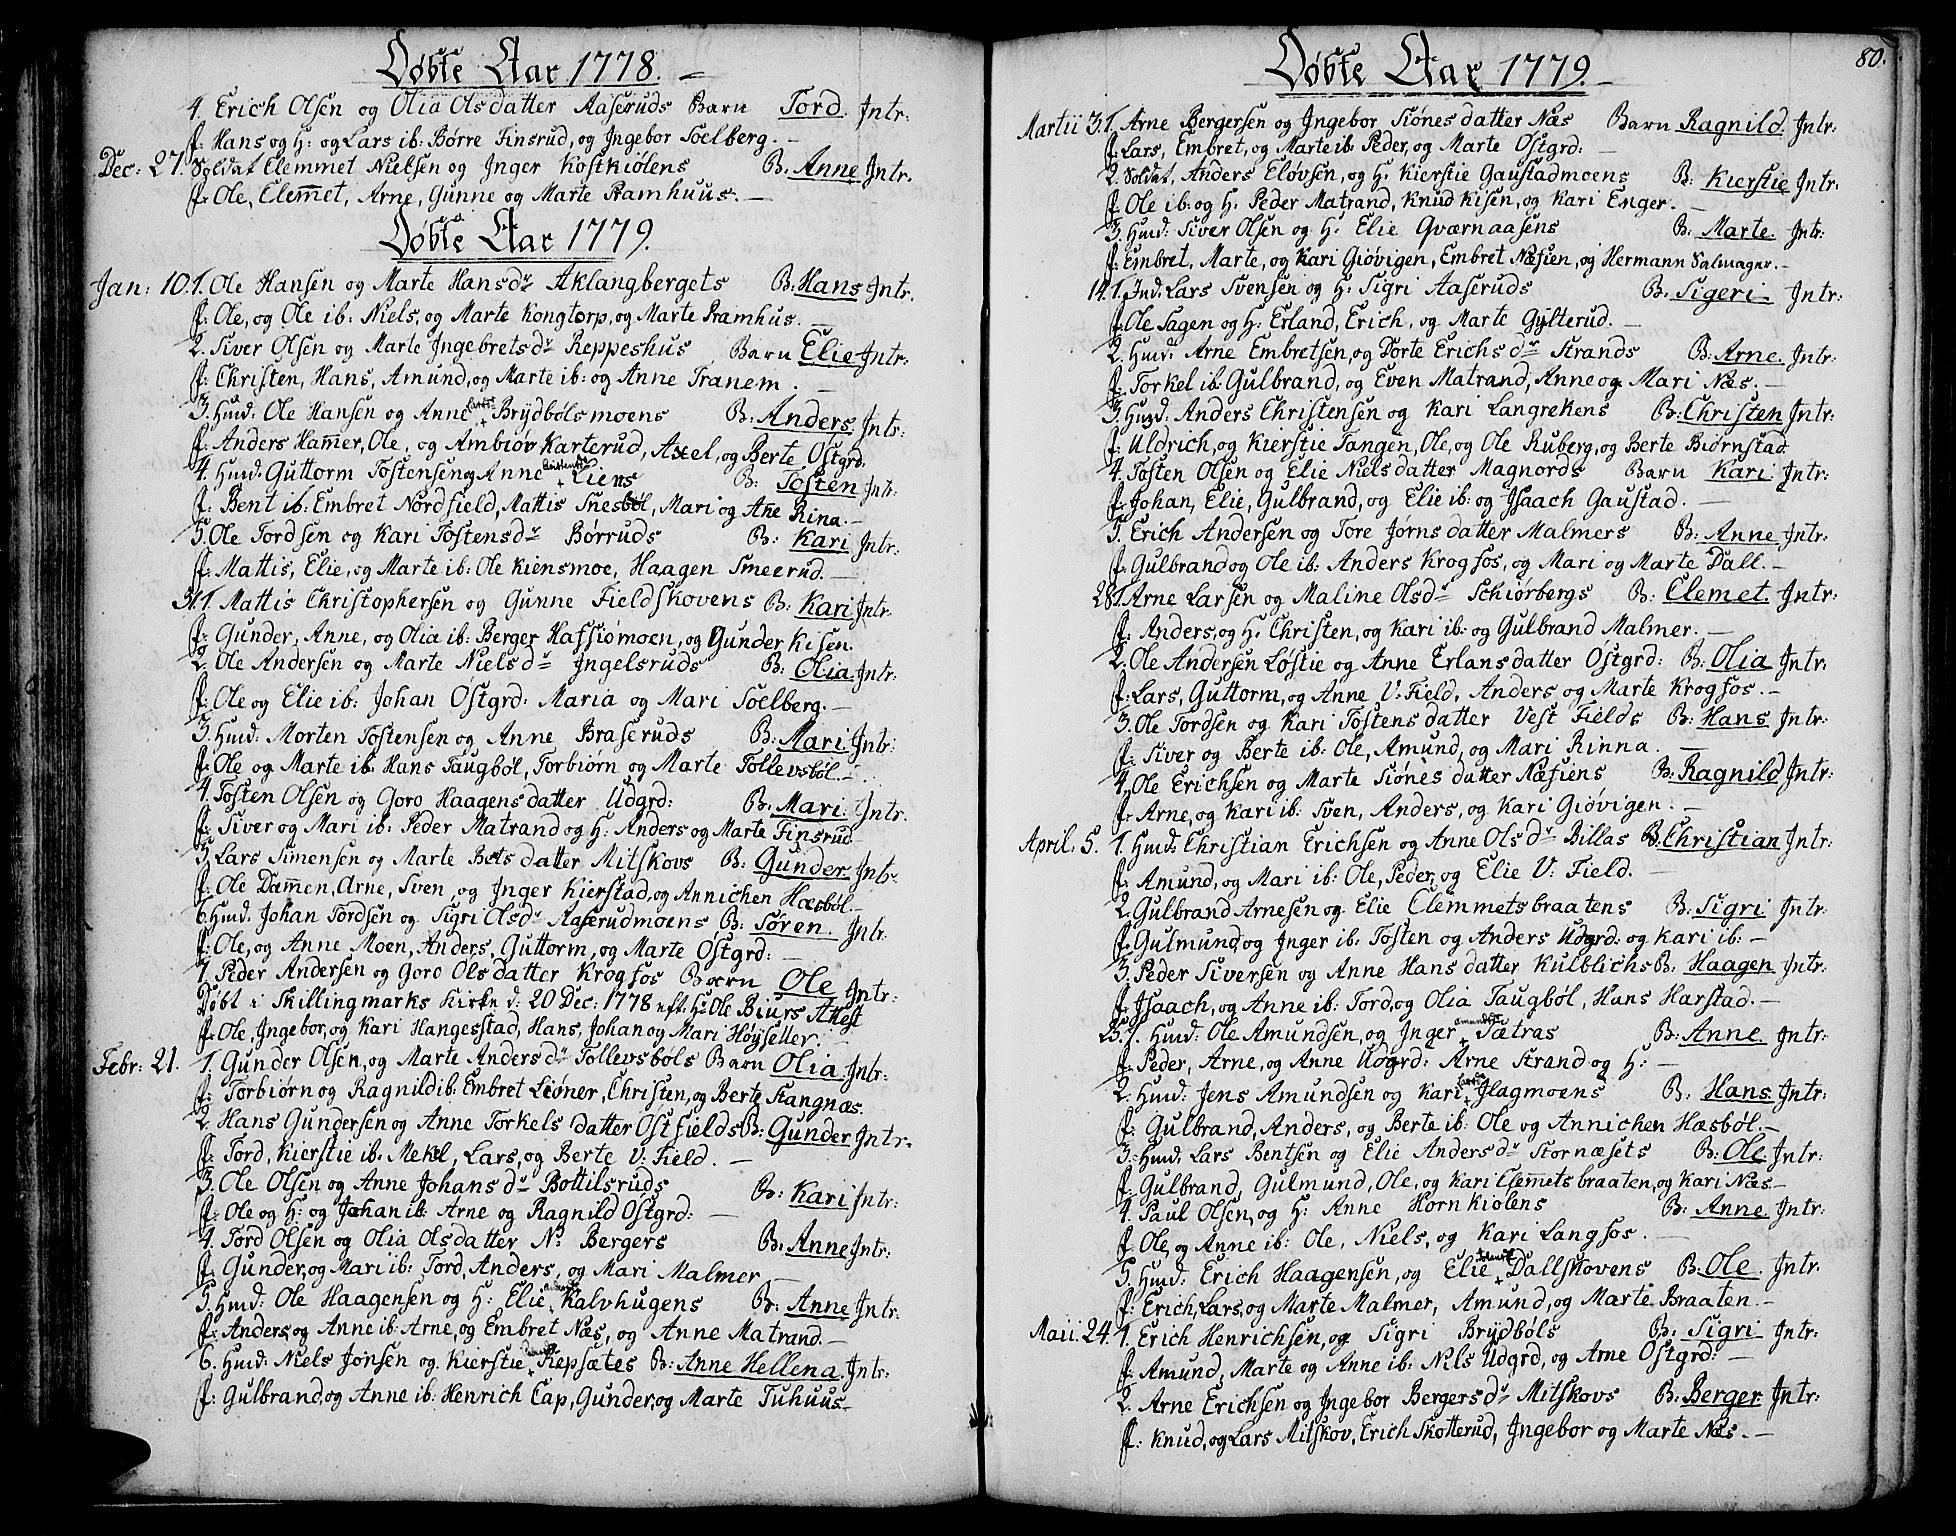 Døbte Aar 1778.
4. Erich Olsen og Olia Olsdatter Aaseruds Barn Tord. Intr:
f: Hans og H: og Lars ib: Børre Finsrud, og Ingebor Soelberg.
Dec: 27. Soldat Clemmet Nielsen og Inger Kostkiølens B: Anne Intr.
f: Ole, Clemmet, Arne, Gunne og Marte Pramhuus.
Døbte Aar 1779.
Jan: 10. 1. Ole Hansen og Marte Hansdr Aklangbergets B: Hans Intr.
f: Ole, og Ole ib: Niels, og Marte Kongtorp, og Marte Pramhus.
2. Siver Olsen og Marte Ingebretsdr Reppeshus Barn Elie Intr:
f: Christen, Hans, Amund, og Marte ib: og Anne Tranem.
3. Hmd: Ole Hansen og Anne Brydbølsmoens B: Anders Intr:
f: Anders Hammer, Ole, og Ambiøv Karterud, Axel, og Berte Østgrd:
4. Hmd: Guttorm Tostensen og Anne Liens B: Tosten Intr:
f: Bent ib: Embret Nordfield, Mattis Snesbøl, Mari og Anne Rina.
5. Ole Tordsen og Kari Tostensdr Børruds B: Kari Intr:
f: Mattis, Elie, og Marte ib: Ole Kiensmoe, Haagen Smeerud.
31. 1. Mattis Christophersen og Gunne Fieldskovens B: Kari Intr:
f: Gunder, Anne, og Olia ib: Berger Hafsiømoen, og Gunder Kisen.
2. Ole Andersen og Marte Nielsdr Ingelsruds B: Olia Intr:
f: Ole og Elie ib: Johan Østgrd: Maria og Mari Soelberg.
3. Hmd: Morten Tostensen og Anne Braseruds B: Mari Intr:
f: Ole og Marte ib: Hans Taugbøl, Torbiørn og Marte Tollevsbøl.
4. Tosten Olsen og Goro Haagensdatter Udgrd: B: Mari. Intr.
f: Siver og Mari ib: Peder Matrand og H: Anders og Marte Finsrud
5. Lars Simensen og Marte Bentsdatter Mitskovs B: Gunder Intr.
f: Ole Dammen, Arne, Sven, og Inger Kierstad, og Annichen Hæsbøl.
6. Hmd: Johan Tordsen og Sigri Olsdr Aaserudmoens B: Søren. Intr.
f: Ole, og Anne Moen, Anders, Guttorm, og Marte Østgrd:
7. Peder Andersen og Goro Olsdatter Krogfos Barn Ole Intr:
Døbt i Skillingmarks Kirke d: 20 Dec: 1778 eft: Hr Ole Biurs Attest
f: Ole, Ingebor, og Kari Hangesstad, Hans, Johan og Mari Høysetter.
Febr: 21. 1. Gunder Olsen, og Marte Andersdr Tollevsbøls Barn Olia Intr:
f: Torbiørn og Ragnild ib: Embret Liøner, Christen, og Berte Stangnæs.
2. Hans Gundersen og Anne Torkelsdatter Østfields B: Gunder Intr.
f: Tord, Kierstie ib: Mekel, Lars, og Berte V: Field.
3. Ole Olsen og Anne Johansdr Bottilsruds B: Kari Intr:
f: Ole og H: og Johan ib: Arne og Ragnild Østgrd:
4. Tord Olsen og Olia Olsdatter N: Bergers B: Anne Intr:
f: Gunder, og Mari ib: Tord, Anders, og Mari Malmer
5. Hmd: Ole Haagensen og H: Elie Kalvhugens B: Anne Intr:
f: Anders, og Anne ib: Arne, og Embret Næs, og Anne Matrand.
6. Hmd: Niels Jonsen og Kierstie Repsætes B: Anne Hellena Intr:
f: Gulbrand, og Anne ib: Henrich Cap, Gunder, og Marte Tuhuus
80.
Døbte Aar 1779.
Martii 3. 1. Arne Bergersen og Ingebor Siønesdatter Næs Barn Ragnild Intr:
f: Lars, Embret, og Marte ib: Peder, og Marte Østgrd:
2. Soldat, Anders Eløvsen, og H: Kierstie Gaustadmoens B: Kierstie Intr:
f: Ole ib: og H: Peder Matrand, Knud Kisen, og Kari Enger.
3. Hmd: Siver Olsen og H: Elie Qværnaasens B: Marte. Intr:
f: Embret, Marte, og Kari Giøvigen, Embret Næsien, og Hermann Salmager.
14. 1. Ind: Lars Svensen og H: Sigri Aaseruds B: Sigeri Intr:
f: Ole Sagen og H: Erland, Erich, og Marte Gylterud.
2. Hmd: Arne Embretsen, og Dorte Erichsdr Strands B: Arne. Intr:
f: Torkel ib: Gulbrand, og Even Matrand, Anne og Mari Næs.
3. Hmd: Anders Christensen og Kari Langrekens B: Christen Intr:
f: Uldrich, og Kierstie Tangen, Ole, og Ole Ruberg, og Berte Biørnstad
4. Tosten Olsen og Elie Nielsdatter Magnords Barn Kari Intr:
f: Johan, Elie, Gulbrand, og Elie ib: og Isaach Gaustad.
5. Erich Andersen og Tore Jørnsdatter Malmers B: Anne Intr:
f: Gulbrand og Ole ib: Anders Krogfos, og Mari og Marte Dall.
28. 1. Arne Larsen og Maline Olsdr Schiørbergs B: Clemet. Intr:
f: Anders, og H: Christen, og Kari ib: og Gulbrand Malmer.
2. Ole Andersen Løstie og Anne Erlansdatter Østgrd: B: Olia Intr:
f: Lars, Guttorm, og Anne V: Field, Anders og Marte Krogfos.
3. Ole Tordsen og Kari Tostensdatter Vest Fields B: Hans Intr:
f: Siver og Berte ib: Ole, Amund, og Mari Rinna.
4. Ole Erichsen og Marte Siønesdatter Næsiens B: Ragnild Intr:
f: Arne, og Kari ib: Sven, Anders, og Kari Giøvigen.
April: 5. 1. Hmd: Christian Erichsen og Anne Olsdr Billas B: Christian Intr:
f: Amund, og Mari ib: Ole, Peder, og Elie V: Field.
2. Gulbrand Arnesen og Elie Clemmetsbraatens B: Sigri Intr:
f: Gulmund, og Inger ib: Tosten og Anders Udgrd: og Kari ib:
3. Peder Siversen og Anne Hansdatter Kulblichs B: Haagen Intr:
f: Isaach, og Anne ib: Tord, og Olia Taugbøl, Hans Harstad.
25. 1. Hmd: Ole Amundsen, og Inger Sætras B: Anne. Intr:
f: Peder, Arne, og Anne Udgrd: Arne Strand og H:
2. Hmd: Jens Amundsen og Kari Hagmoens B: Hans. Intr:
f: Gulbrand, Anders, og Berte ib: Ole og Annichen Hæsbøl.
3. Hmd: Lars Bentsen og Elie Andersdr Stornæsets B: Ole Intr:
f: Gulbrand, Gulmund, Ole, og Kari Clemmetsbraaten, og Kari Næs.
4. Paul Olsen, og H: Anne Hornkiølens B: Anne Intr:
f. Ole, og Anne ib: Ole, Niels, og Kari Langfos.
5. Hmd: Erich Haagensen, og Elie Dallskovens B: Ole. Intr:
f: Erich, Lars, og Marte Malmer, Amund, og Marte Braaten.
Maii: 24. 1. Erich Henrichsen, og Sigri Brydbøls B: Sigri Intr:
f: Amund, Marte og Anne ib: Nils Udgrd, og Arne Østgrd:
2. Arne Erichsen og Ingebor Bergersdr Mitskovs B: Berger Intr:
f: Knud, og Lars Mitskov, Erich Skotterud, Ingebor og Marte Næs.